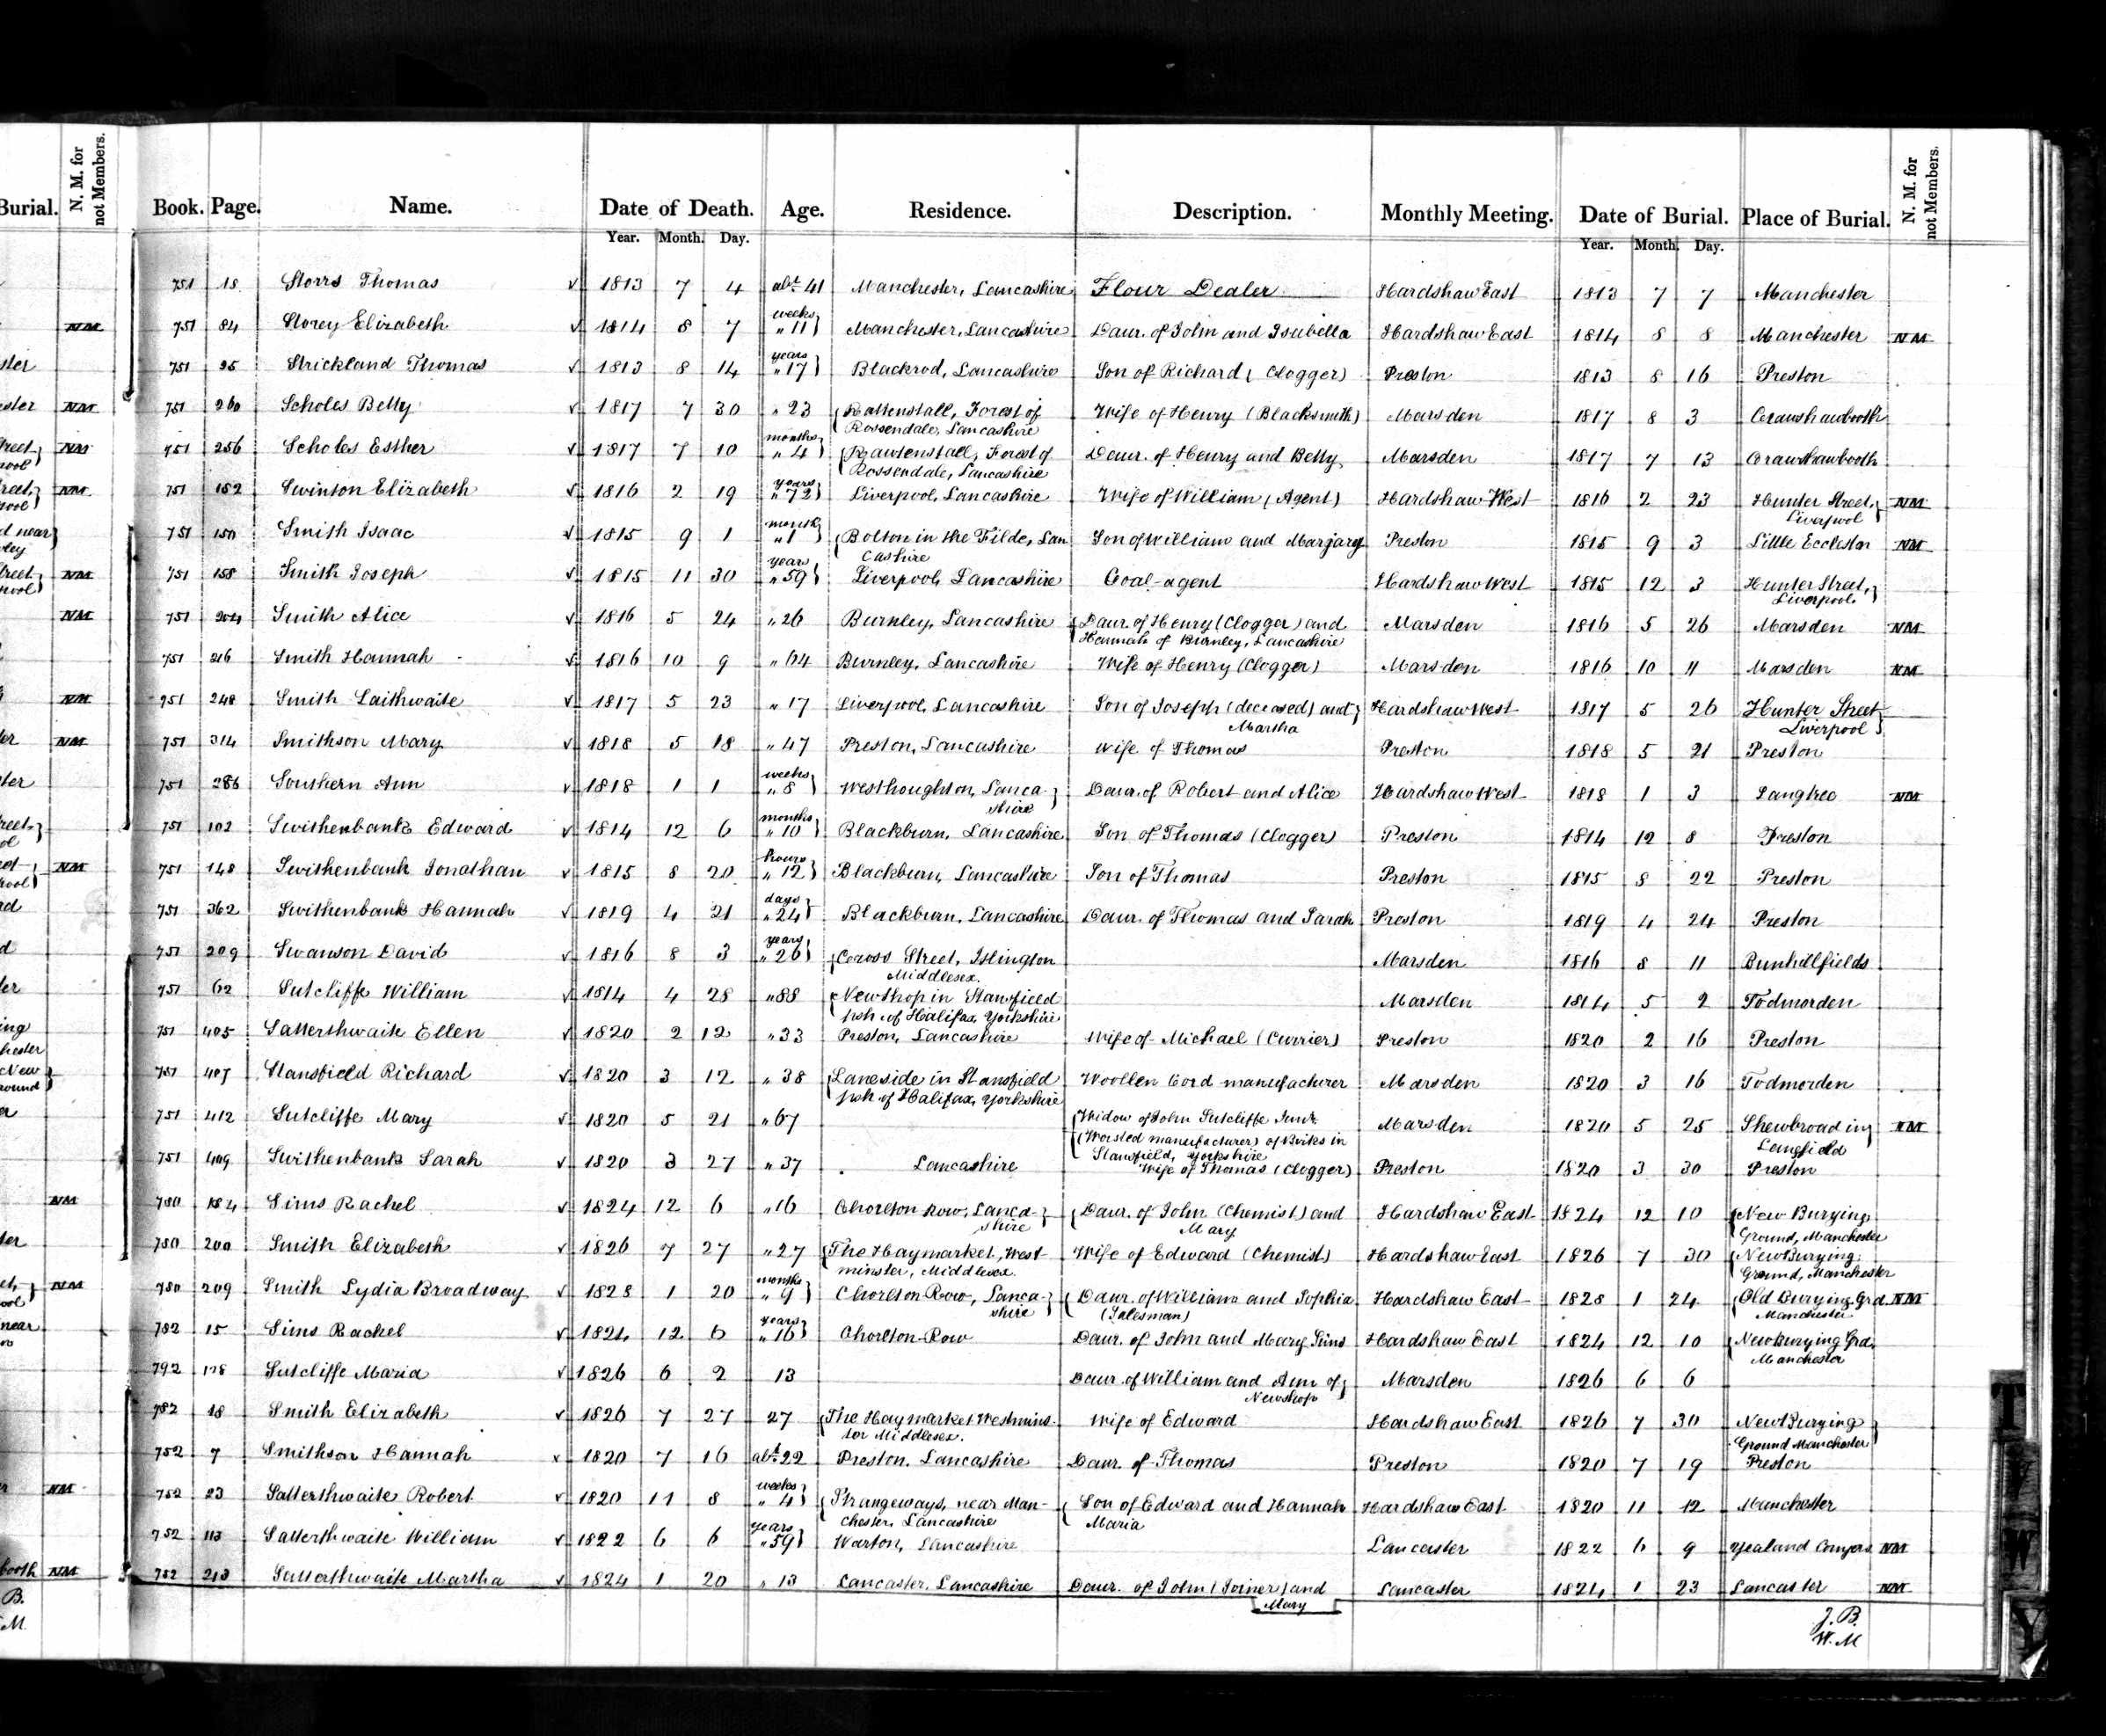 Burial.
N. M. for not Members.
Book. Page. Name. Date of Death. Age. Residence. Description. Monthly Meeting. Date of Burial. Place of Burial. N. M. for not Members.
Year. Month. Day. Year. Month. Day.
751 18 Storrs Thomas 1813 7 4 abt. 41 Manchester, Lancashire Flour Dealer Hardshaw East 1813 7 7 Manchester
weeks
751 84 Storey Elizabeth 1814 8 7 " 11 Manchester, Lancashire Daur. of John and Isabella Hardshaw East 1814 8 8 Manchester NM
years
751 25 Strickland Thomas 1813 8 14 " 17 Blackrod, Lancashire Son of Richard (Clogger) Preston 1813 8 16 Preston
751 260 Scholes Betty 1817 7 30 " 23 Rattenstall, Forest of Wife of Henry (Blacksmith) Marsden 1817 8 3 Crawshawbooth
Rossendale, Lancashire
months
751 256 Scholes Esther 1817 7 10 " 4 Rawtenstall, Forest of Daur. of Henry and Betty Marsden 1817 7 13 Crawshawbooth
Rossendale, Lancashire
years
751 182 Swinton Elizabeth 1816 2 19 " 72 Liverpool, Lancashire Wife of William (Agent) Hardshaw West 1816 2 23 Hunter Street, NM
Liverpool
month
751 150 Smith Isaac 1815 9 1 " 1 Bolton in the Filde, Lan Son of William and Marjary Preston 1815 9 3 Little Eccleston NM
cashire
years
751 158 Smith Joseph 1815 11 30 " 59 Liverpool, Lancashire Coal-agent Hardshaw West 1815 12 3 Hunter Street,
Liverpool.
751 204 Smith Alice 1816 5 24 " 26 Burnley, Lancashire Daur. of Henry (Clogger) and Marsden 1816 5 26 Marsden NM
Hannah of Burnley, Lancashire
751 216 Smith Hannah 1816 10 9 " 64 Burnley, Lancashire Wife of Henry (Clogger) Marsden 1816 10 11 Marsden NM
751 248 Smith Laithwaite 1817 5 23 " 17 Liverpool, Lancashire Son of Joseph (deceased) and Hardshaw West 1817 5 26 Hunter Street
Martha Liverpool
751 314 Smithson Mary 1818 5 18 " 47 Preston, Lancashire Wife of Thomas Preston 1818 5 21 Preston
weeks
751 286 Southern Ann 1818 1 1 " 8 Westhoughton, Lanca- Daur. of Robert and Alice Hardshaw West 1818 1 3 Langtree NM
shire
months
751 102 Swithenbank Edward 1814 12 6 " 10 Blackburn, Lancashire Son of Thomas (Clogger) Preston 1814 12 8 Preston
hours
751 148 Swithenbank Jonathan 1815 8 20 " 12 Blackburn, Lancashire Son of Thomas Preston 1815 8 22 Preston
days
751 362 Swithenbank Hannah 1819 4 21 " 24 Blackburn, Lancashire Daur. of Thomas and Sarah Preston 1819 4 24 Preston
years
751 209 Swanson David 1816 8 3 " 26 Cross Street, Islington Marsden 1816 8 11 Bunhillfields
Middlesex.
751 62 Sutcliffe William 1814 4 28 " 88 Newshop in Stansfield Marsden 1814 5 2 Todmorden
psh of Halifax, Yorkshire
751 405 Satterthwaite Ellen 1820 2 12 " 33 Preston, Lancashire Wife of Michael (Currier) Preston 1820 2 16 Preston
751 407 Stansfield Richard 1820 3 12 " 38 Laneside in Stansfield Woollen Cord manufacturer Marsden 1820 3 16 Todmorden
psh of Halifax, Yorkshire
751 412 Sutcliffe Mary 1820 5 21 " 67 Widow of John Sutcliffe Junr. Marsden 1820 5 25 Shewbroad in NM
(Worsted manufacturer) of Birks in Langfield
Stansfield, Yorkshire
751 409 Swithenbank Sarah 1820 3 27 " 37 Lancashire Wife of Thomas (Clogger) Preston 1820 3 30 Preston
780 184 Sims Rachel 1824 12 6 " 16 Chorlton Row, Lanca- Daur. of John (Chemist) and Hardshaw East 1824 12 10 New Burying
shire Mary Ground, Manchester
780 200 Smith Elizabeth 1826 7 27 " 27 The Haymarket, West- Wife of Edward (Chemist) Hardshaw East 1826 7 30 New Burying
minster, Middlesex. Ground, Manchester
months
780 209 Smith Lydia Broadway 1828 1 20 " 9 Chorlton Row, Lanca- Daur. of William and Sophia Hardshaw East 1828 1 24 Old Burying Grd NM
shire (Salesman) Manchester
years
782 15 Sims Rachel 1824 12 6 " 16 Chorlton Row Daur. of John and Mary Sims Hardshaw East 1824 12 10 New Burying Grd.
Manchester
792 178 Sutcliffe Maria 1826 6 2 13 Daur. of William and Ann of Marsden 1826 6 6
Newshop
782 18 Smith Elizabeth 1826 7 27 27 The Haymarket Westmins- Wife of Edward Hardshaw East 1826 7 30 New Burying
ter Middlesex. Ground Manchester
752 7 Smithson Hannah 1820 7 16 abt. 22 Preston. Lancashire Daur. of Thomas Preston 1820 7 19 Preston
weeks
752 23 Satterthwaite Robert 1820 11 8 " 4 Strangeways, near Man- Son of Edward and Hannah Hardshaw East 1820 11 12 Manchester
chester, Lancashire Maria
years
752 113 Satterthwaite William 1822 6 6 " 59 Warton, Lancashire Lancaster 1822 6 9 Yealand Conyers NM
752 213 Satterthwaite Martha 1824 1 20 " 13 Lancaster, Lancashire Daur. of John (Joiner) and Lancaster 1824 1 23 Lancaster NM
Mary
J. B.
W. M